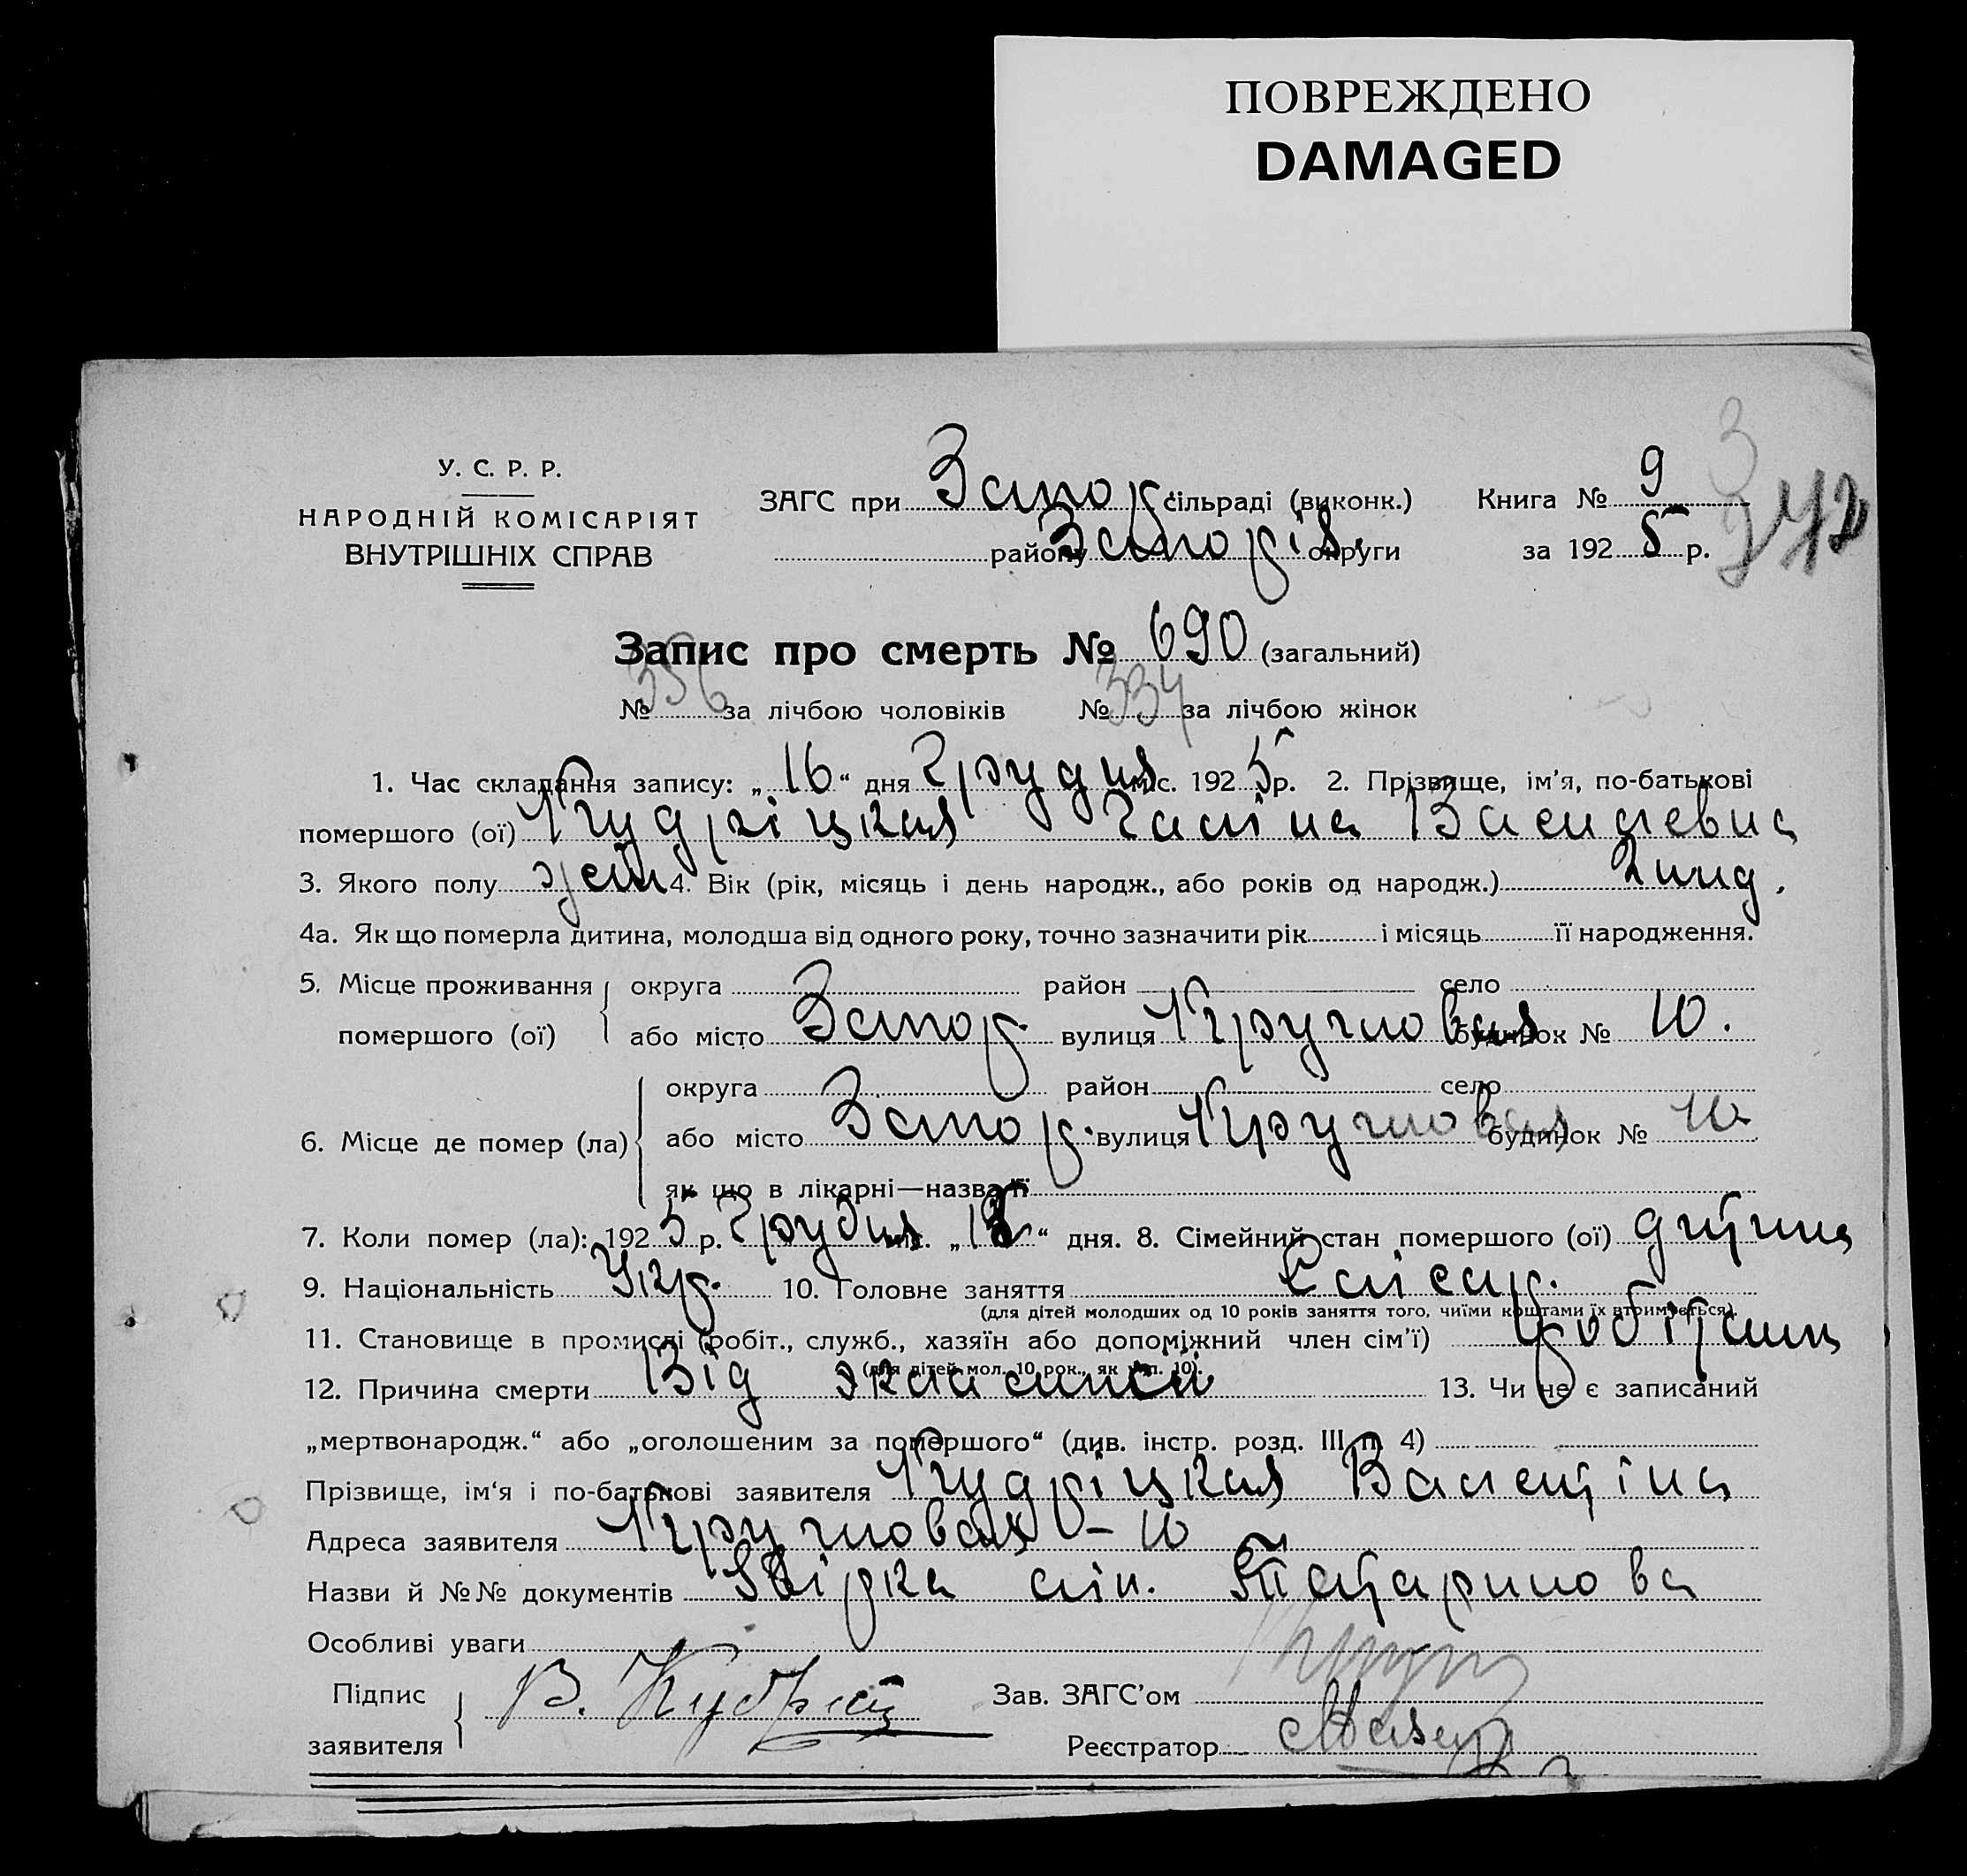 ПОВРЕЖДЕНО
DAMAGED
У. С. Р. Р.
НАРОДНІЙ КОМІСАРІЯТ
ВНУТРІШНІХ СПРАВ
ЗАГС при Запор. сільраді (виконк.)
району Запоріз. округи
Книга № 9
за 1925 р.
Запис про смерть № 690 (загальний)
№ 356 за лічбою чоловіків № 334 за лічбою жінок
1. Час складання запису: „16“ дня Грудня міс. 1925 р. 2. Прізвище, ім'я, по-батькові
помершого (ої) Кудріцкая Галіна Васильевна
3. Якого полу жен 4. Вік (рік, місяць і день народж., або років од народж.) 2
4а. Як що померла дитина, молодша від одного року, точно зазначити рік і місяць її народження.
5. Місце проживання помершого (ої) округа район село
або місто Запор. вулиця Кругловая будинок № 10.
6. Місце де помер (ла) округа район село
або місто Запор. вулиця Кругловая будинок № 10
як що в лікарні—назва її
7. Коли помер (ла): 1925 р. Грудня міс. „ “ дня. 8. Сімейний стан помершого (ої) дитина
9. Національність Укр. 10. Головне заняття
(для дітей молодших од 10 років заняття того, чиїми коштами їх втримується).
11. Становище в промислі (робіт., служб., хазяїн або допоміжний член сім'ї)
(для дітей мол. 10 рок., як у п. 10).
12. Причина смерти Від эклампсій 13. Чи не є записаний
„мертвонародж.“ або „оголошеним за помершого“ (див. інстр. розд. III п. 4)
Прізвище, ім'я і по-батькові заявителя Кудріцкая Валентіна
Адреса заявителя Кругловая – 10
Назви й №№ документів лік. Татаринова
Особливі уваги
Підпис заявителя В. Кудриц
Зав. ЗАГС'ом
Реєстратор